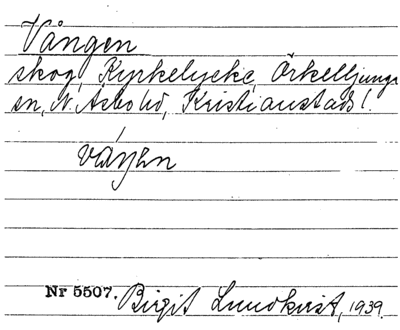 Vången
skog, Kyrkelycke, Örkelljunga
sn, N. Åsbo hd, Kristianstads l.
våŋɛn
Nr 5507. Birgit Lundkvist, 1939.